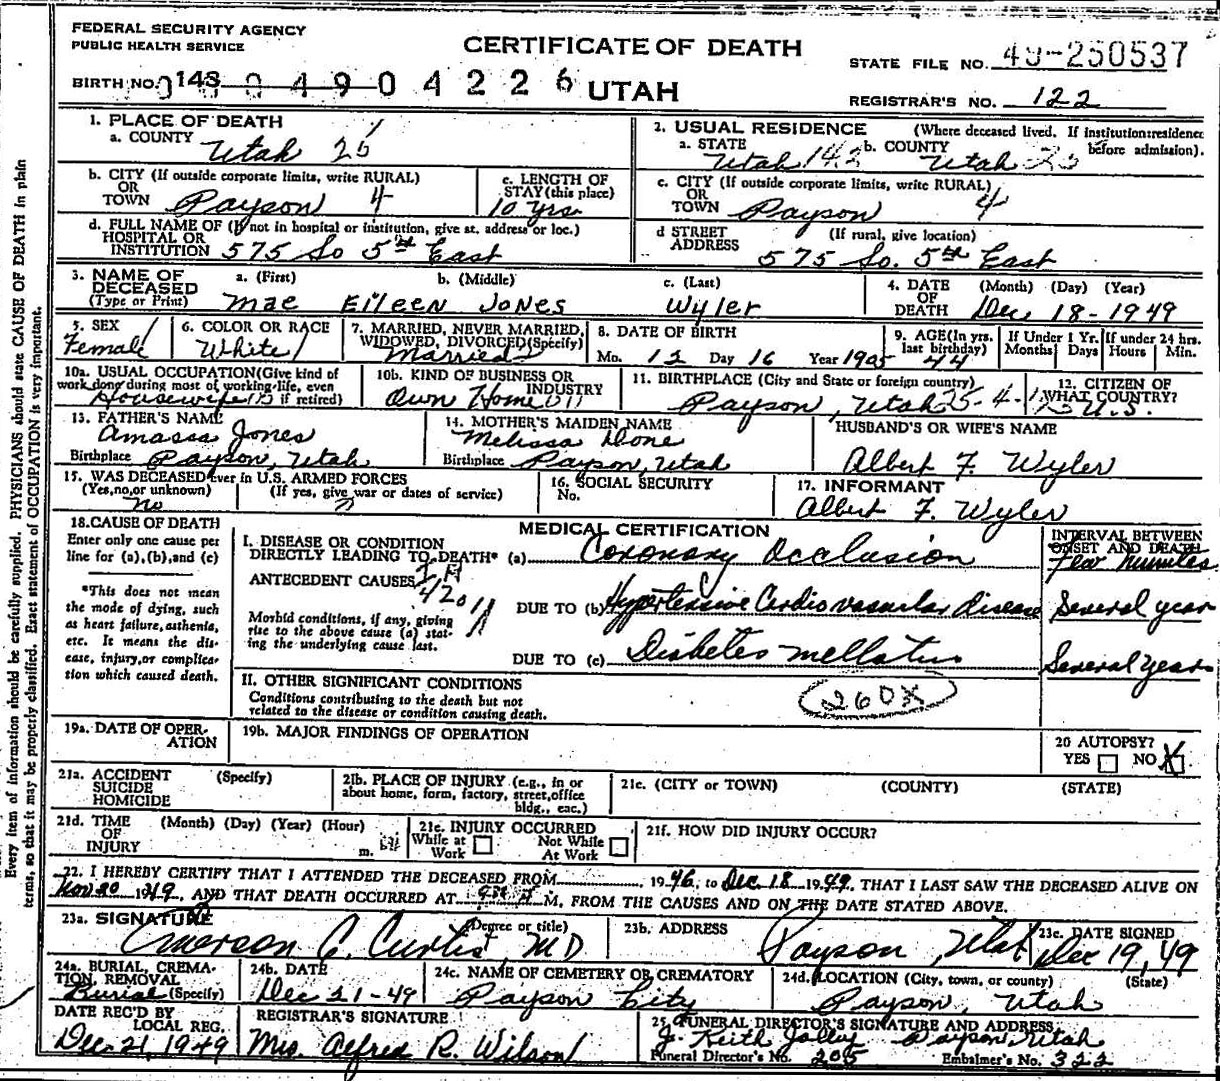 FEDERAL SECURITY AGENCY
PUBLIC HEALTH SERVICE
CERTIFICATE OF DEATH
STATE FILE NO. 49-250537
BIRTH NO. 143 0 4 9 0 4 2 2 6 UTAH
REGISTRAR'S NO. 122
1. PLACE OF DEATH
a. COUNTY Utah 25
2. USUAL RESIDENCE (Where deceased lived. If institution: residence before admission).
a. STATE Utah b. COUNTY Utah
b. CITY (If outside corporate limits, write RURAL) OR TOWN Payson 4
c. LENGTH OF STAY (this place) 10 yrs
c. CITY (If outside corporate limits, write RURAL) OR TOWN Payson 4
d. FULL NAME OF (If not in hospital or institution, give st. address or loc.) HOSPITAL OR INSTITUTION 575 So 5th East
d STREET ADDRESS (If rural, give location) 575 So. 5th East
3. NAME OF DECEASED (Type or Print)
a. (First) Mae b. (Middle) Eileen Jones c. (Last) Wyler
4. DATE OF DEATH (Month) (Day) (Year) Dec 18-1949
5. SEX Female
6. COLOR OR RACE White
7. MARRIED, NEVER MARRIED, WIDOWED, DIVORCED (Specify) Married
8. DATE OF BIRTH Mo. 12 Day 16 Year 1905
9. AGE (In yrs. last birthday) 44
If Under 1 Yr. Months Days
If under 24 hrs. Hours Min.
10a. USUAL OCCUPATION (Give kind of work done during most of working life, even if retired) Housewife
10b. KIND OF BUSINESS OR INDUSTRY Own Home
11. BIRTHPLACE (City and State or foreign country) Payson, Utah 25-4-1
12. CITIZEN OF WHAT COUNTRY? U.S.
13. FATHER'S NAME Amassa Jones
Birthplace Payson, Utah
14. MOTHER'S MAIDEN NAME Melissa Done
Birthplace Payson, Utah
HUSBAND'S OR WIFE'S NAME
Albert F. Wyler
15. WAS DECEASED ever in U.S. ARMED FORCES
(Yes, no, or unknown) No (If yes, give war or dates of service)
16. SOCIAL SECURITY No.
17. INFORMANT
Albert F. Wyler
18. CAUSE OF DEATH
Enter only one cause per line for (a), (b), and (c)
*This does not mean the mode of dying, such as heart failure, asthenia, etc. It means the disease, injury, or complication which caused death.
MEDICAL CERTIFICATION
I. DISEASE OR CONDITION DIRECTLY LEADING TO DEATH* (a) Coronary Occlusion
INTERVAL BETWEEN ONSET AND DEATH
Few minutes
ANTECEDENT CAUSES
4201
Morbid conditions, if any, giving rise to the above cause (a) stating the underlying cause last.
DUE TO (b) Hypertensive Cardiovascular disease Several year
DUE TO (c) Diabetes mellatus Several Years
II. OTHER SIGNIFICANT CONDITIONS
Conditions contributing to the death but not related to the disease or condition causing death.
260X
19a. DATE OF OPERATION
19b. MAJOR FINDINGS OF OPERATION
20 AUTOPSY?
YES NO X
21a. ACCIDENT SUICIDE HOMICIDE (Specify)
21b. PLACE OF INJURY (e.g., in or about home, form, factory, street, office bldg., eac.)
21c. (CITY OR TOWN) (COUNTY) (STATE)
21d. TIME OF INJURY (Month) (Day) (Year) (Hour) m.
21e. INJURY OCCURRED
While at Work Not While At Work
21f. HOW DID INJURY OCCUR?
22. I HEREBY CERTIFY THAT I ATTENDED THE DECEASED FROM 1946, to Dec 18 1949, THAT I LAST SAW THE DECEASED ALIVE ON
Nov 20 1949, AND THAT DEATH OCCURRED AT M, FROM THE CAUSES AND ON THE DATE STATED ABOVE.
23a. SIGNATURE (Degree or title) Emerson C. Curtis, MD
23b. ADDRESS Payson, Utah
23c. DATE SIGNED Dec 19, 49
24a. BURIAL, CREMATION, REMOVAL (Specify) Burial
24b. DATE Dec 21-49
24c. NAME OF CEMETERY OR CREMATORY Payson City
24d. LOCATION (City, town, or county) (State) Payson, Utah
DATE REC'D BY LOCAL REG. Dec. 21, 1949
REGISTRAR'S SIGNATURE Mrs. Alfred R. Wilson
25. FUNERAL DIRECTOR'S SIGNATURE AND ADDRESS
J. Keith Jolley Payson, Utah
Funeral Director's No. 205 Embalmer's No. 322
Every item of information should be carefully supplied. PHYSICIANS should state CAUSE OF DEATH in plain
terms, so that it may be properly classified. Exact statement of OCCUPATION is very important.